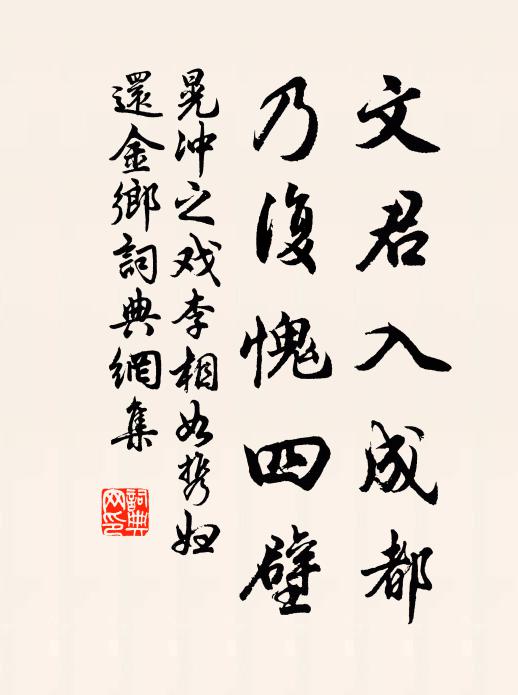 文君入成都
乃復愧四壁
晁冲之戏李相如携妇
還金鄉詞典網集
詞典网印